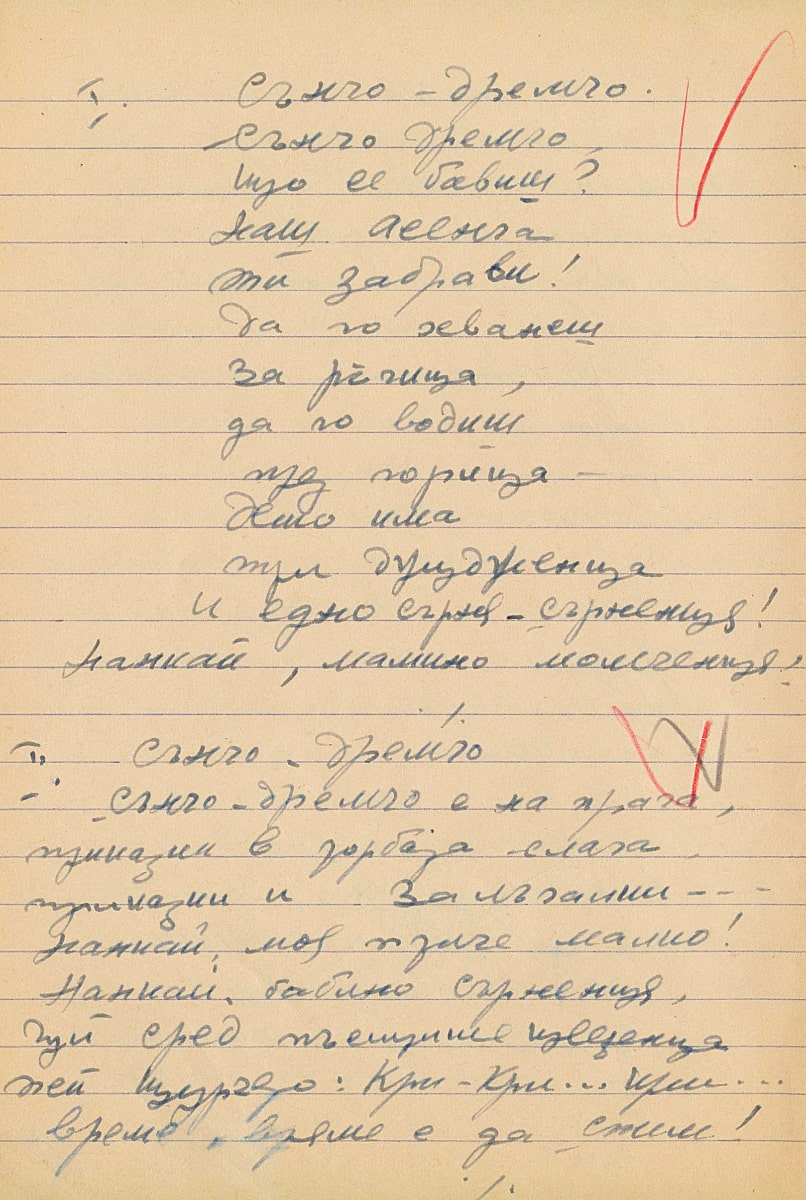 I. Сънчо - дремчо.
Сънчо дремчо,
що се бавиш?
Наш Асенча
ти забрави!
Да го хванеш
за ръчица,
да го водиш
през горица -
Дето има
три дущдуленца
И едно сърне - сърненце!
Нанкай, мамино момченце!
I. Сънчо - Дремчо
Сънчо - дремчо е на прага,
приказки в торбата слага
приказки и залъгалки - - -
Нанкай, мое пиле малко!
Нанкай, бабино сърненце,
Чуй сред пъстрите цветенца
пей щурчето: Кри - Кри... Кри...
време, време е да спим!